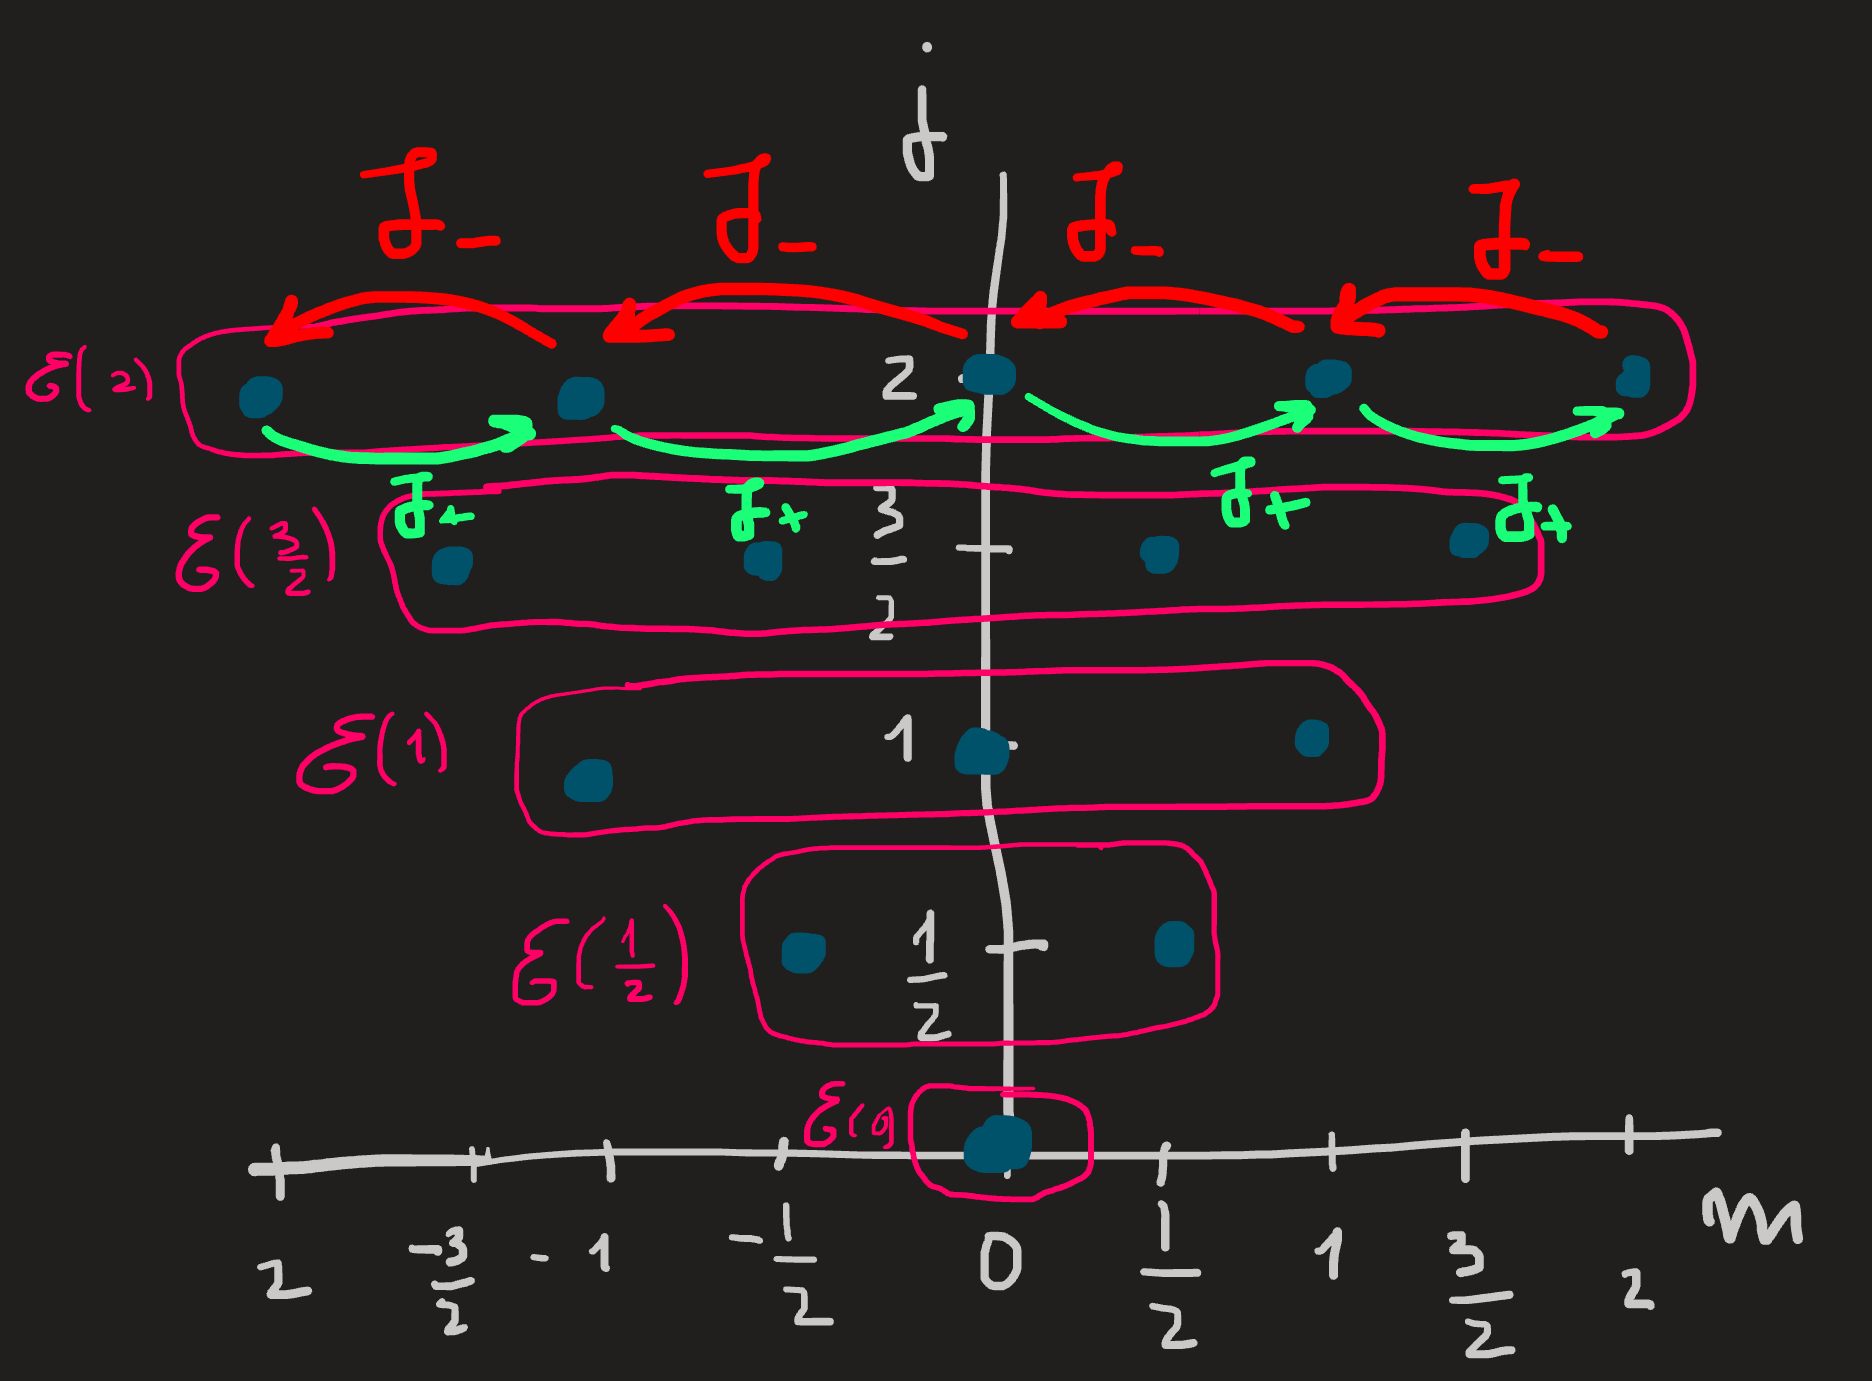 j
J_- J_- J_- J_-
ℰ(2) 2
J_+ J_+ J_+ J_+
ℰ(3/2) 3/2
ℰ(1) 1
ℰ(1/2) 1/2
ℰ(0)
2 -3/2 -1 -1/2 0 1/2 1 3/2 2 m